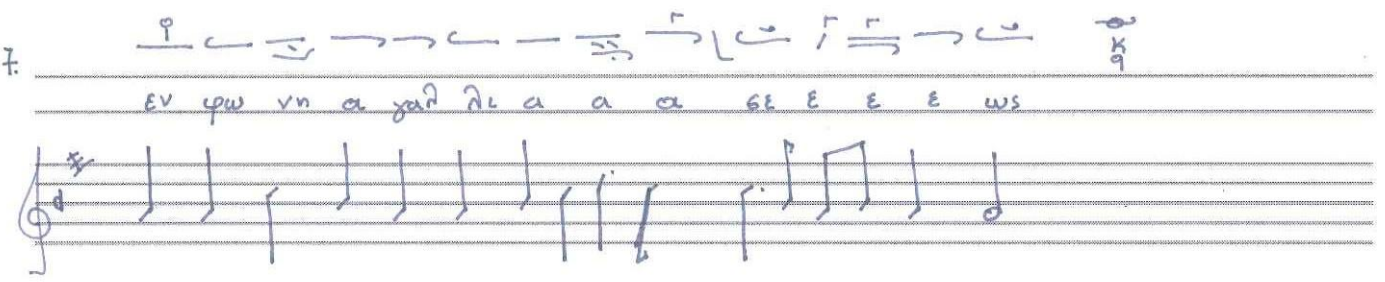 7.
εν φω νη α γαλ λι α α α σε ε ε ε ως